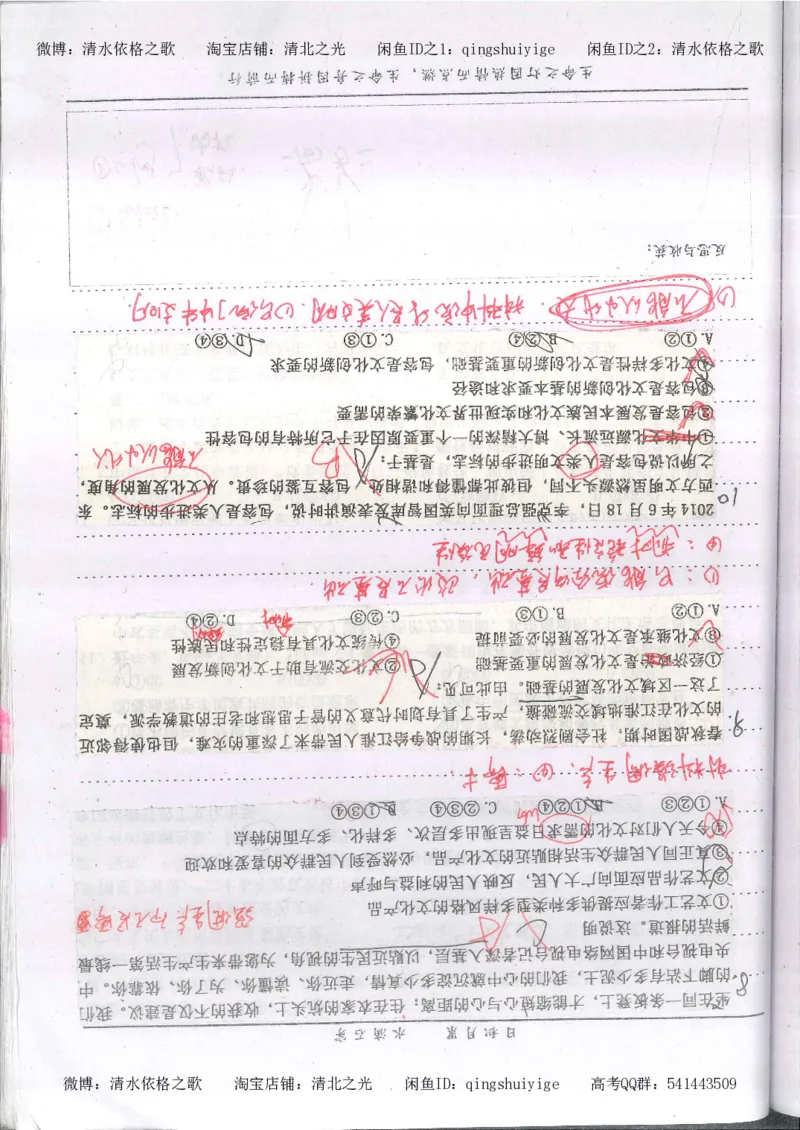 微博：清水依格之歌 淘宝店铺：清北之光 闲鱼ID之1：qingshuiyige 闲鱼ID之2：清水依格之歌
日积月累 水滴石穿
8.
坐在同一条板凳上，才能缩短心与心的距离；住在农家的炕头上，收获的不仅是建议。我们
的脚下沾有多少泥土，我们的心中就沉淀多少真情，走近你、读懂你、为了你、依靠你。中
央电视台和中国网络电视台记者深入基层，以贴近民生的视角，为您带来生产生活第一线最
鲜活的报道。这说明
①文艺工作者应提供多种类型多样风格的文化产品
②文艺作品应面向广大人民，反映人民的利益与呼声
③真正同人民群众生活相贴近的文化产品，必然受到人民群众的喜爱和欢迎
④今天人们对文化的需求日益呈现出多层次、多样化、多方面的特点
A. ①②③ B. ①②④ C. ②③④ D. ①③④
9.
春秋战国时期，社会剧烈动荡，长期的战争给江淮人民带来了深重的灾难，但也使得邻近
的文化在江淮地域交流碰撞，产生了具有划时代意义的管子思想和老庄的道教学派，奠定
了这一区域文化发展的基础。由此可见：
①经济政治是文化发展的重要基础 ②文化交流有助于文化创新发展
③文化继承是文化发展的必要前提 ④传统文化具有稳定性和民族性
A. ①② B. ①③ C. ②③ D. ②④
10
2014年6月18日，李克强总理面向英国智库发表演讲时说，包容是人类进步的标志。东
西方文明虽然源头不同，但彼此都懂得和谐相处、包容互鉴的珍贵。从文化发展的角度，
之所以说包容是人类文明进步的标志，是基于：
①中华文化源远流长、博大精深的一个重要原因在于它所特有的包容性
②包容是发展本民族文化和实现世界文化繁荣的需要
③包容是文化创新的基本要求和途径
④文化多样性是文化创新的重要基础，包容是文化创新的要求
A. ①② B. ②④ C. ①③ D. ③④
反思与收获：
生命之灯因热情而点燃，生命之舟因拼搏而前行
微博：清水依格之歌 淘宝店铺：清北之光 闲鱼ID：qingshuiyige 高考QQ群：541443509